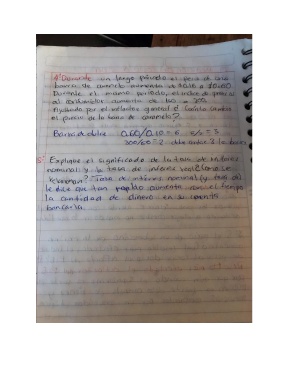 4° Durante un largo período el precio de una
barra de caramelo aumenta de $0.10 a $0.60
Durante el mismo período, el índice de precios
al consumidor aumenta de 150 a 300
por la inflación general ¿Cuánto cambia
el precio de la barra de caramelo?
Barra de dulce 0.60/0.10 = 6 6/2 = 3
300/150 = 2
5° Explique el significado de la tasa de interés
nominal y la tasa de interés real ¿Cómo se
relacionan? Tasa de interés nominal
le dice que tan rápido aumenta con el tiempo
la cantidad de dinero en su cuenta
bancaria